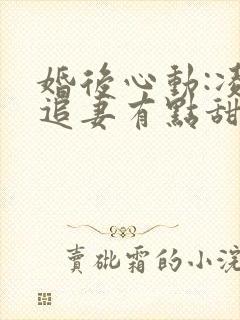 婚後心動:凌
追妻有點甜
賣砒霜的小浣